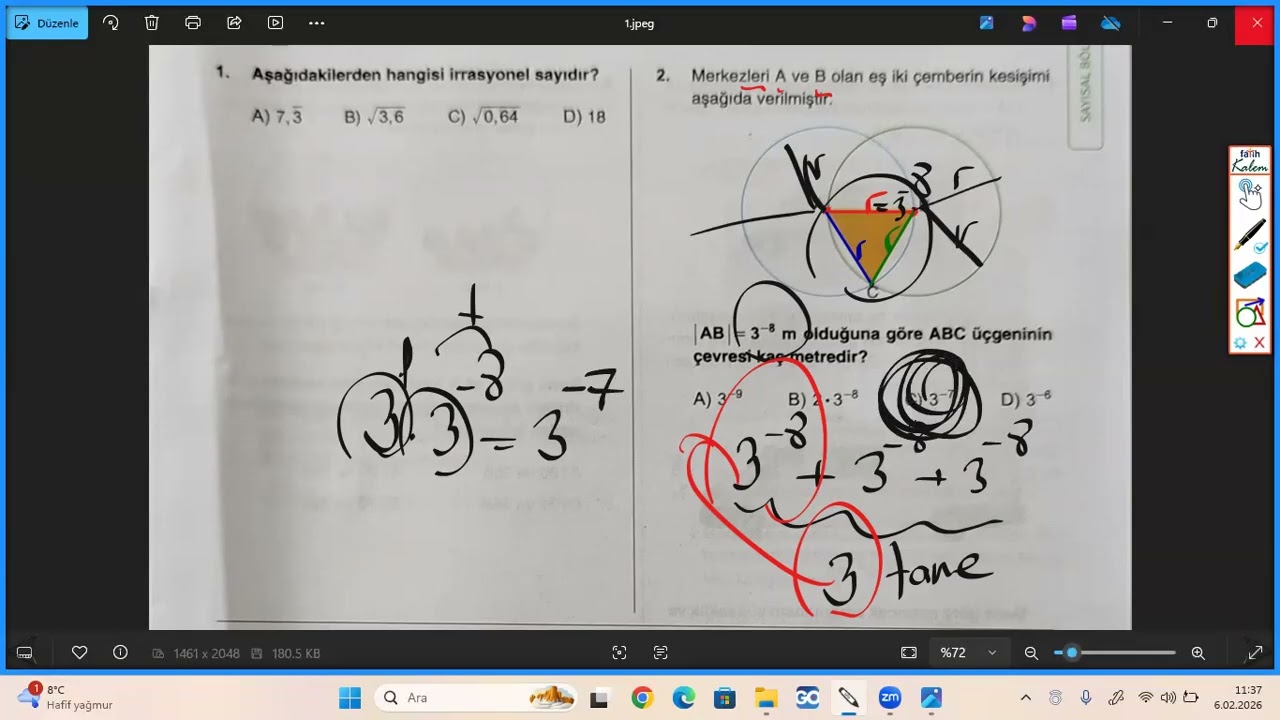 Düzenle
1.jpeg
1. Aşağıdakilerden hangisi irrasyonel sayıdır?
A) 7,3̅ B) √3,6 C) √0,64 D) 18
2. Merkezleri A ve B olan eş iki çemberin kesişimi
aşağıda verilmiştir.
SAYISAL BÖL
r r
r = 3⁻⁸
r r r
C
|AB| = 3⁻⁸ m olduğuna göre ABC üçgeninin
çevresi kaç metredir?
A) 3⁻⁹ B) 2 · 3⁻⁸ C) 3⁻⁷ D) 3⁻⁶
+
1
3 · 3⁻⁸ = 3⁻⁷
3⁻⁸ + 3⁻⁸ + 3⁻⁸
3 tane
fatih
Kalem
1461 x 2048 180.5 KB
%72
1
8°C
Hafif yağmur
Ara
GO
zm
11:37
6.02.2026